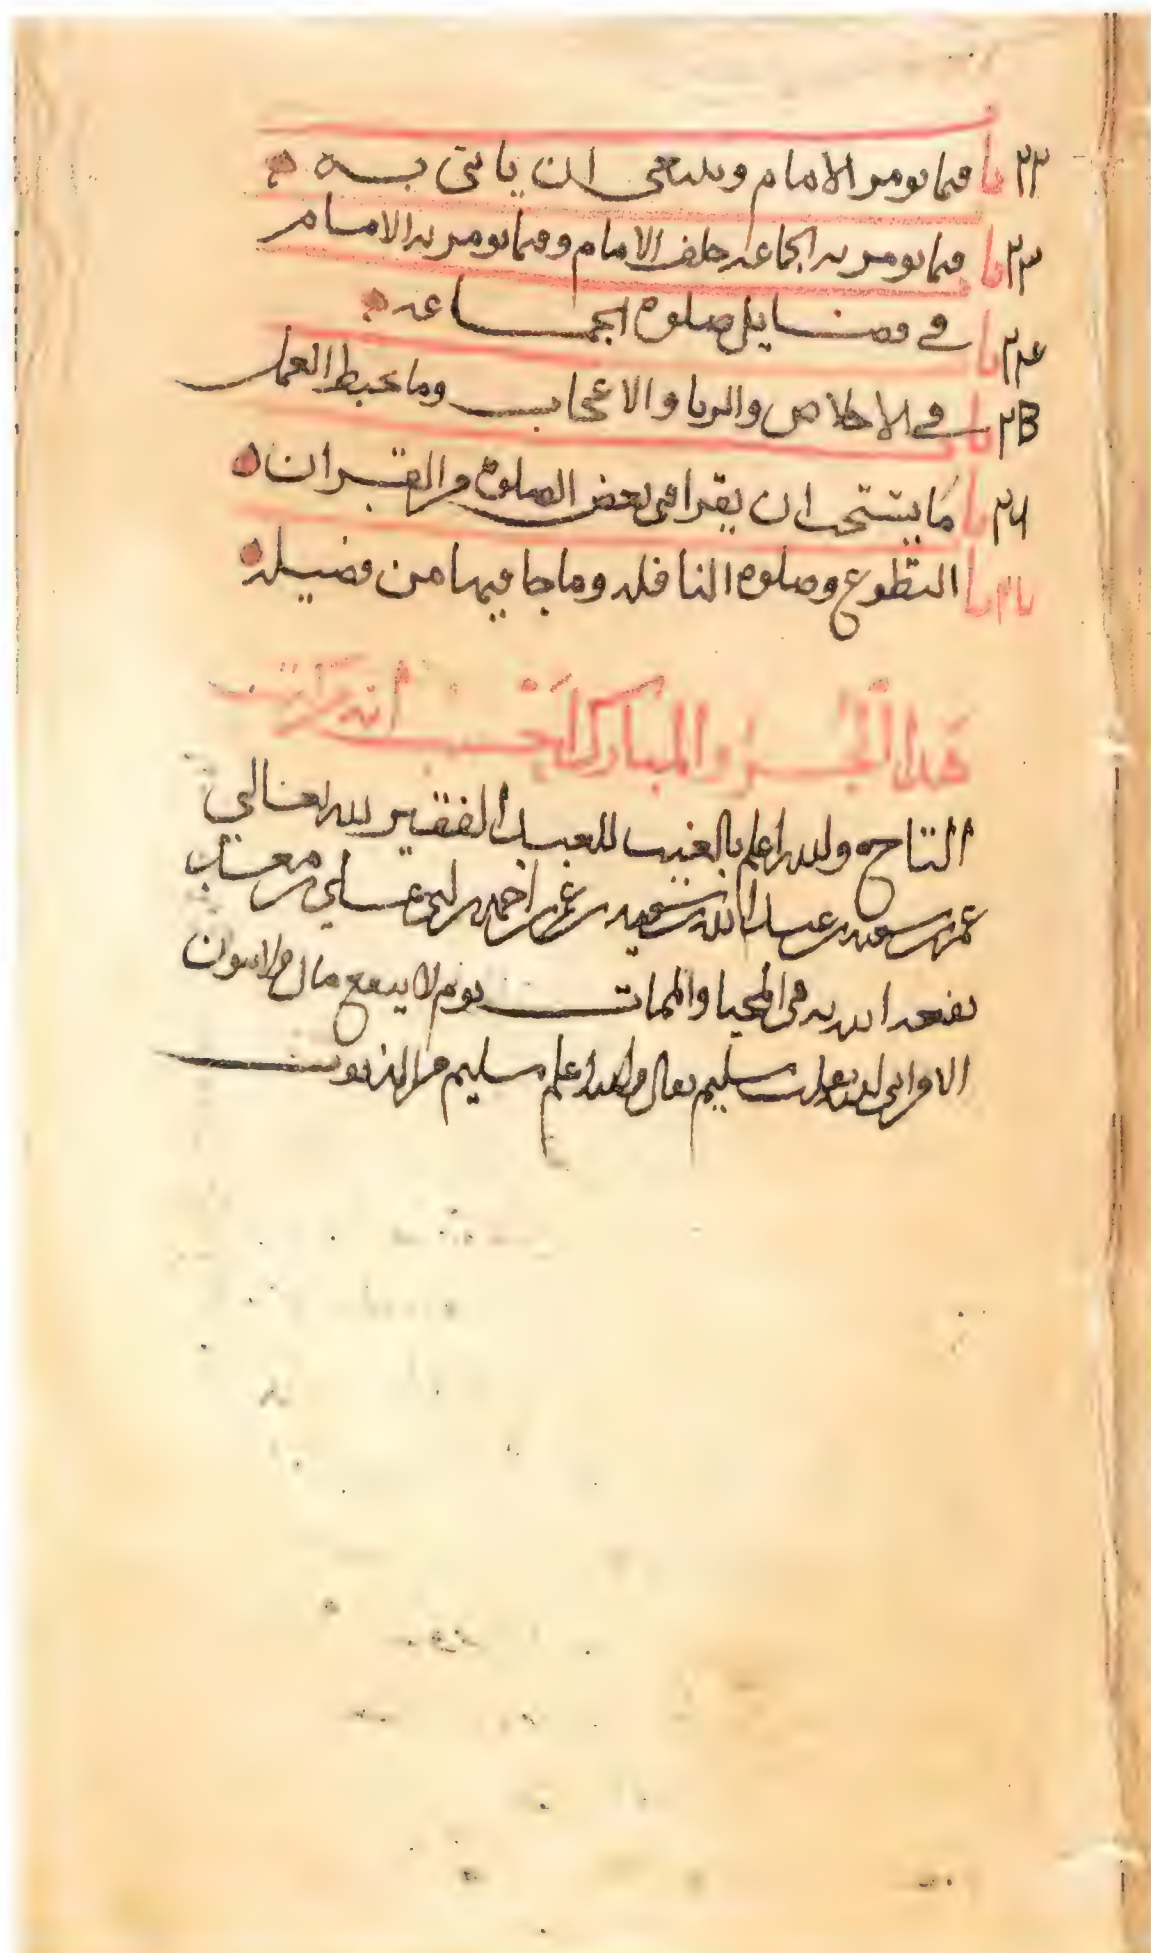 ٢٢ با فيما يومر الامام وينبغي ان ياتي بـــه
٢٣ با فيما يومر به الجماعه خلف الامام وفيما يومر به الامـام
٢٤ با في فضـــايل صلوة الجمـــاعه
٢٥ با في الاخلاص والريا والاعجاب وما يحبط العمل
٢٦ با ما يستحب ان يقرا في بعض الصلوة من القران
٢٧ با التطوع وصلوة النافله وما جا فيها من فضيله
هذا الجـــزو المبارك انحسب انه من ترتيب
التاج والله اعلم بالغيب للعبد الفقير لله تعالى
عمر بن سعيد بن عبد الله بن سعيد بن عمر بن احمد بن ابي علي بن معد
نفعه الله به في المحيا والممات يوم لا ينفع مال ولا بنون
الا من اتى الله بقلب سليم من الذنوب